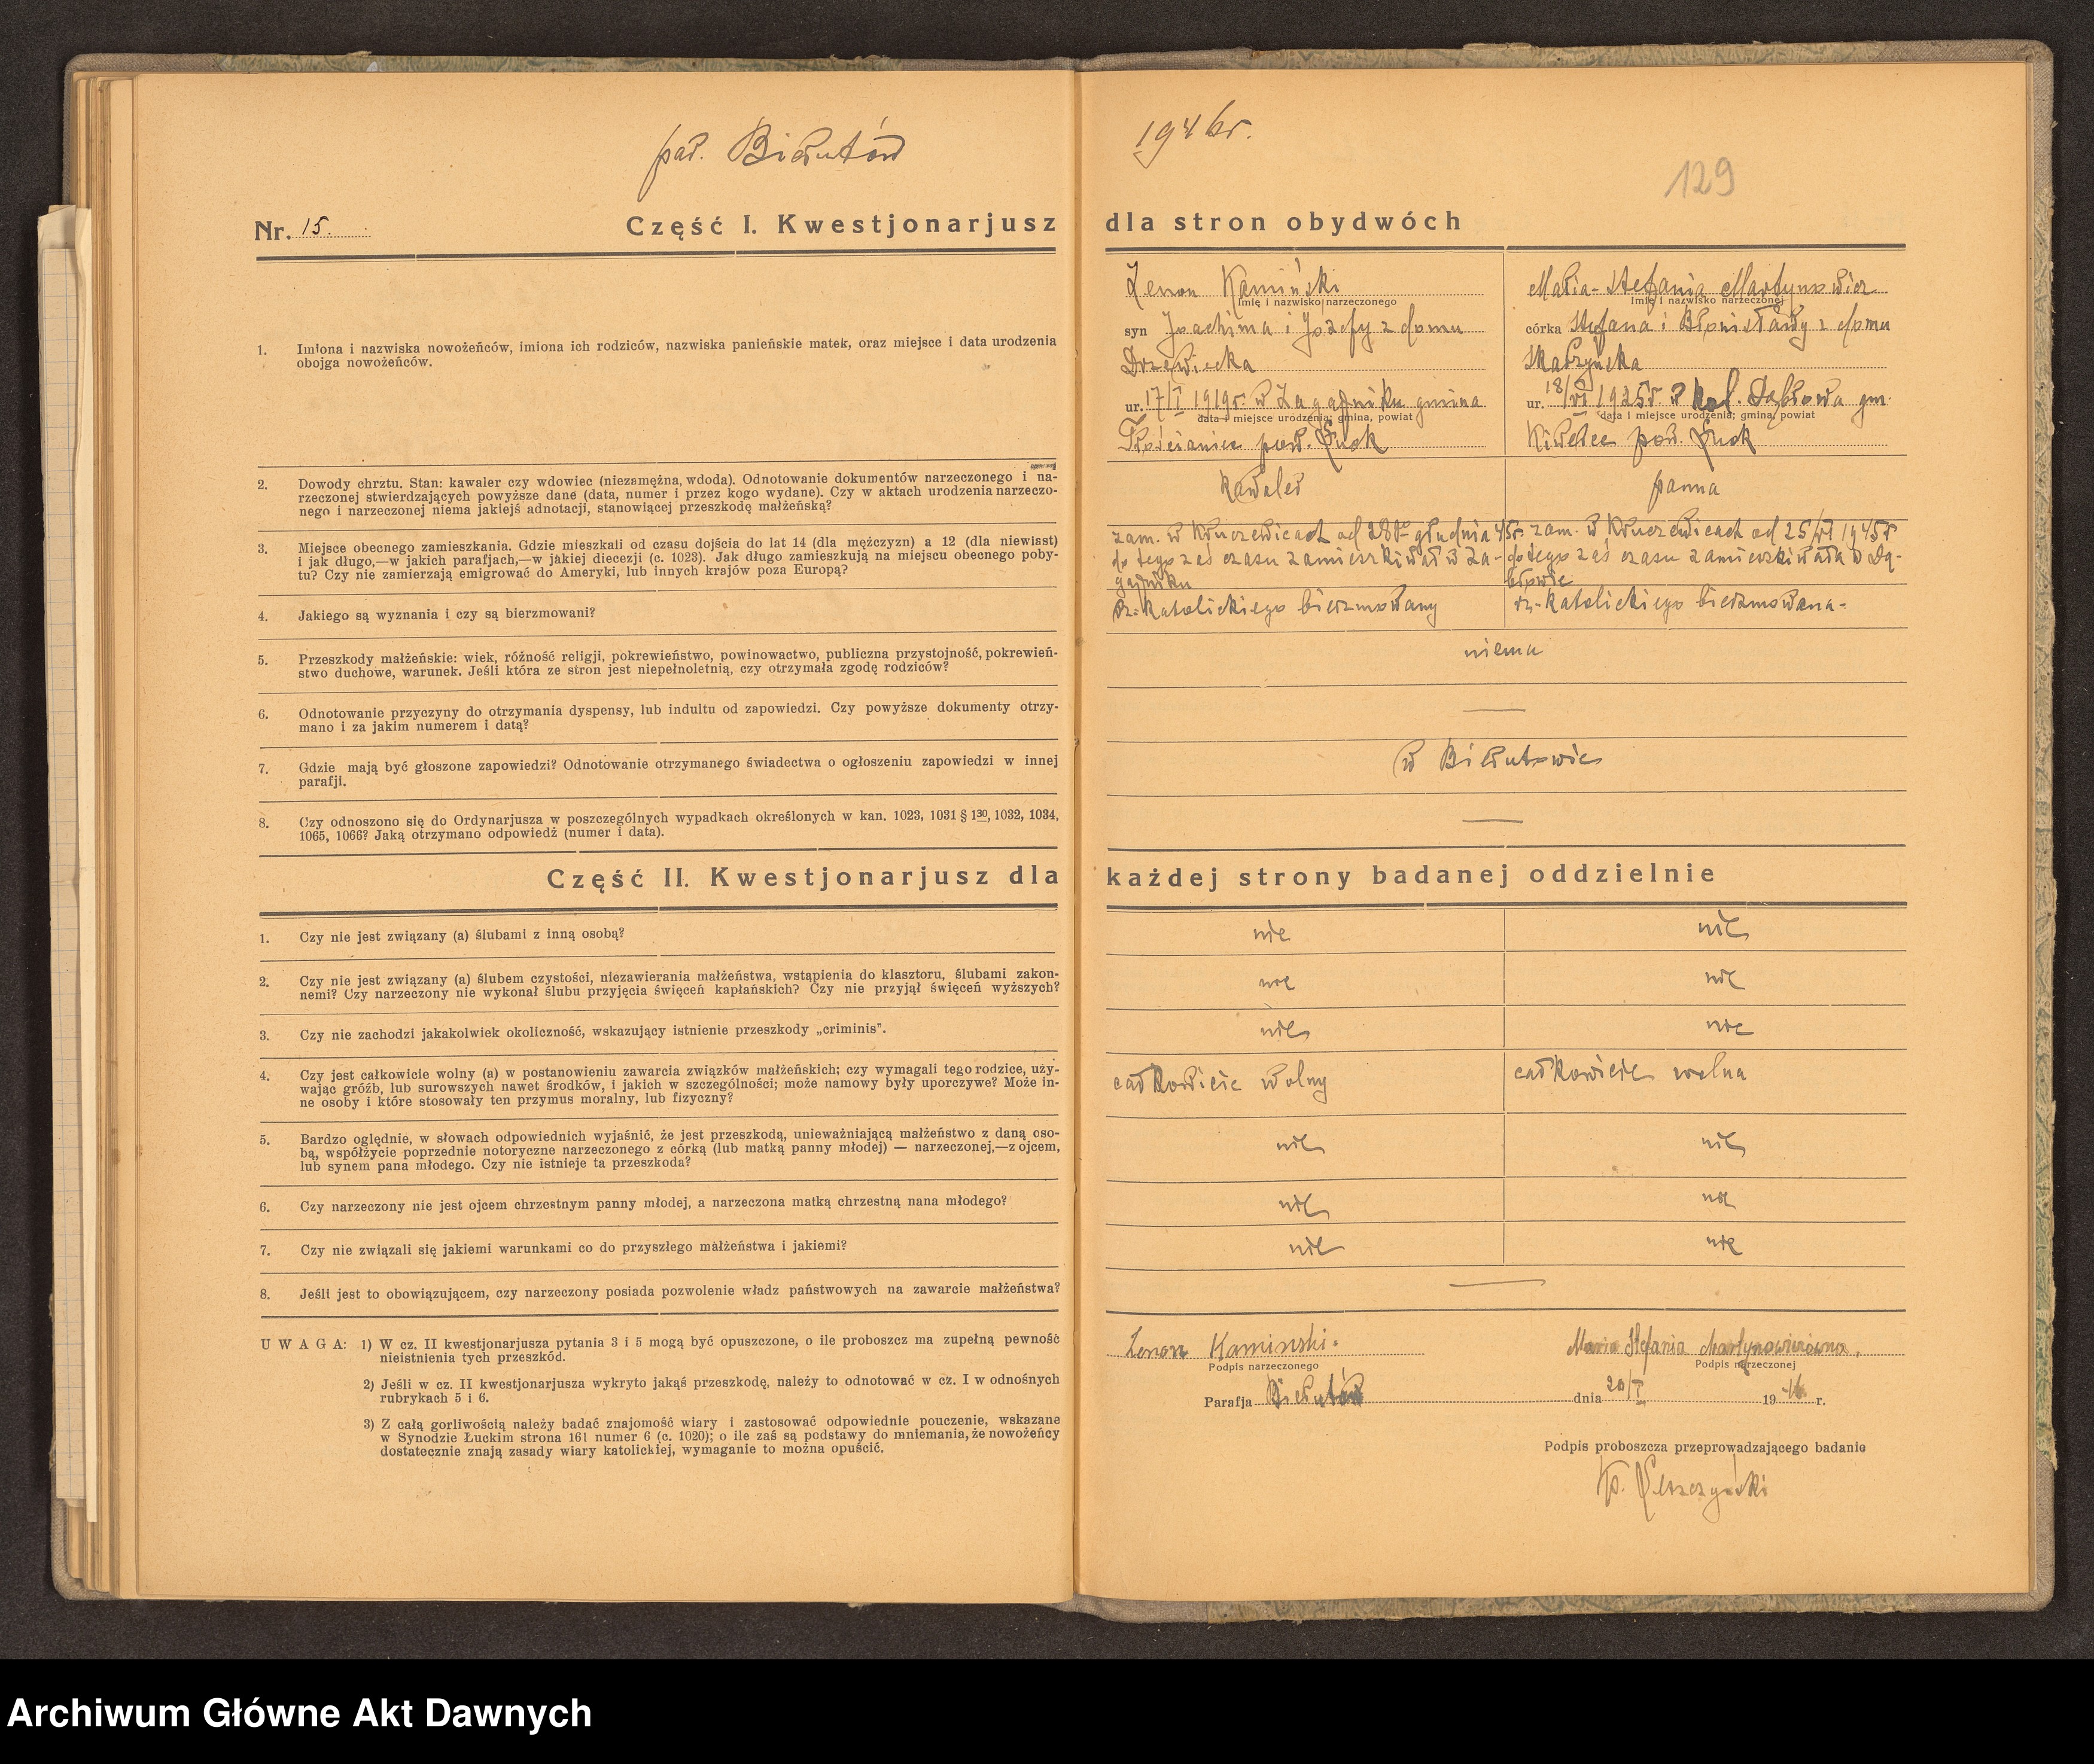 par. Bierutów
1946r.
129
Nr. 15.
Część I. Kwestjonarjusz dla stron obydwóch
1. Imiona i nazwiska nowożeńców, imiona ich rodziców, nazwiska panieńskie matek, oraz miejsce i data urodzenia
obojga nowożeńców.
Zenon Kamiński
Imię i nazwisko narzeczonego
syn Joachima i Józefy z domu
Drzewiecka
ur. 17/I 1919r. w Zagajniku gmina
data i miejsce urodzenia, gmina, powiat
Trościaniec pow. Łuck
Maria-Stefania Martynowicz
Imię i nazwisko narzeczonej
córka Stefana i Bronisławy z domu
Skarzyńska
ur. 18/VI 1925r w kol. Dąbrowa gm.
data i miejsce urodzenia, gmina, powiat
Kiwerce pow. Łuck
2. Dowody chrztu. Stan: kawaler czy wdowiec (niezamężna, wdoda). Odnotowanie dokumentów narzeczonego i na-
rzeczonej stwierdzających powyższe dane (data, numer i przez kogo wydane). Czy w aktach urodzenia narzeczo-
nego i narzeczonej niema jakiejś adnotacji, stanowiącej przeszkodę małżeńską?
kawaler
panna
3. Miejsce obecnego zamieszkania. Gdzie mieszkali od czasu dojścia do lat 14 (dla mężczyzn) a 12 (dla niewiast)
i jak długo,—w jakich parafjach,—w jakiej diecezji (c. 1023). Jak długo zamieszkują na miejscu obecnego poby-
tu? Czy nie zamierzają emigrować do Ameryki, lub innych krajów poza Europą?
zam. w Kruczewicach od 28go grudnia 45r.
do tego zaś czasu zamieszkiwał w Za-
gajniku
zam. w Kruczewicach od 25/VI 1945r
do tego zaś czasu zamieszkiwała w Dą-
browie
4. Jakiego są wyznania i czy są bierzmowani?
rz-katolickiego bierzmowany
rz-katolickiego bierzmowana-
5. Przeszkody małżeńskie: wiek, różność religji, pokrewieństwo, powinowactwo, publiczna przystojność, pokrewień-
stwo duchowe, warunek. Jeśli która ze stron jest niepełnoletnią, czy otrzymała zgodę rodziców?
niema
6. Odnotowanie przyczyny do otrzymania dyspensy, lub indultu od zapowiedzi. Czy powyższe dokumenty otrzy-
mano i za jakim numerem i datą?
—
7. Gdzie mają być głoszone zapowiedzi? Odnotowanie otrzymanego świadectwa o ogłoszeniu zapowiedzi w innej
parafji.
w Bierutowie
8. Czy odnoszono się do Ordynarjusza w poszczególnych wypadkach określonych w kan. 1023, 1031 § 130, 1032, 1034,
1065, 1066? Jaką otrzymano odpowiedź (numer i data).
—
Część II. Kwestjonarjusz dla każdej strony badanej oddzielnie
1. Czy nie jest związany (a) ślubami z inną osobą?
nie
nie
2. Czy nie jest związany (a) ślubem czystości, niezawierania małżeństwa, wstąpienia do klasztoru, ślubami zakon-
nemi? Czy narzeczony nie wykonał ślubu przyjęcia święceń kapłańskich? Czy nie przyjął święceń wyższych?
nie
nie
3. Czy nie zachodzi jakakolwiek okoliczność, wskazujący istnienie przeszkody „criminis”.
nie
nie
4. Czy jest całkowicie wolny (a) w postanowieniu zawarcia związków małżeńskich; czy wymagali tego rodzice, uży-
wając gróźb, lub surowszych nawet środków, i jakich w szczególności; może namowy były uporczywe? Może in-
ne osoby i które stosowały ten przymus moralny, lub fizyczny?
całkowicie wolny
całkowicie wolna
5. Bardzo oględnie, w słowach odpowiednich wyjaśnić, że jest przeszkodą, unieważniającą małżeństwo z daną oso-
bą, współżycie poprzednie notoryczne narzeczonego z córką (lub matką panny młodej) — narzeczonej,—z ojcem,
lub synem pana młodego. Czy nie istnieje ta przeszkoda?
nie
nie
6. Czy narzeczony nie jest ojcem chrzestnym panny młodej, a narzeczona matką chrzestną nana młodego?
nie
nie
7. Czy nie związali się jakiemi warunkami co do przyszłego małżeństwa i jakiemi?
nie
nie
8. Jeśli jest to obowiązującem, czy narzeczony posiada pozwolenie władz państwowych na zawarcie małżeństwa?
—
UWAGA: 1) W cz. II kwestjonarjusza pytania 3 i 5 mogą być opuszczone, o ile proboszcz ma zupełną pewność
nieistnienia tych przeszkód.
2) Jeśli w cz. II kwestjonarjusza wykryto jakąś przeszkodę, należy to odnotować w cz. I w odnośnych
rubrykach 5 i 6.
3) Z całą gorliwością należy badać znajomość wiary i zastosować odpowiednie pouczenie, wskazane
w Synodzie Łuckim strona 161 numer 6 (c. 1020); o ile zaś są podstawy do mniemania, że nowożeńcy
dostatecznie znają zasady wiary katolickiej, wymaganie to można opuścić.
Zenon Kaminski.
Podpis narzeczonego
Maria Stefania Martynowiczówna.
Podpis narzeczonej
Parafja Bierutów dnia 20/I 1946 r.
Podpis proboszcza przeprowadzającego badanie
Archiwum Główne Akt Dawnych